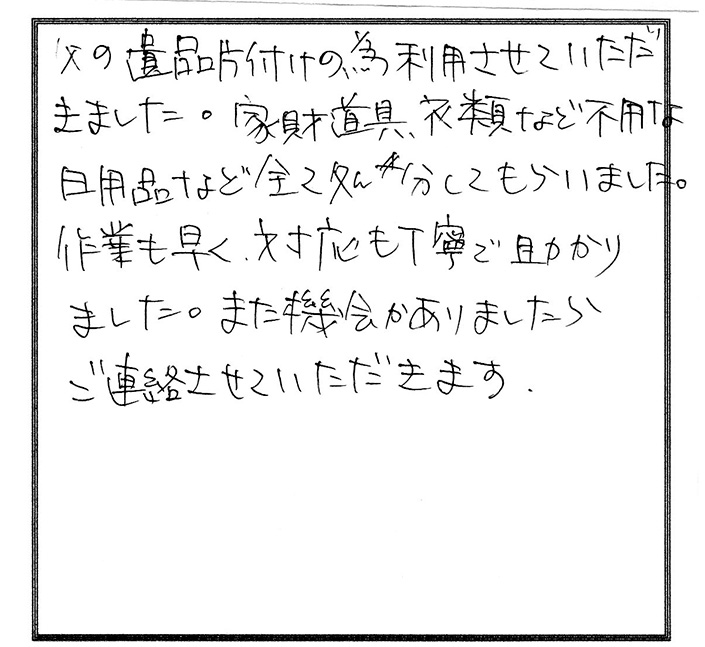 父の遺品片付けの為利用させていただ
きました。家財道具、衣類など不用な
日用品など全て処分してもらいました。
作業も早く、対応も丁寧で助かり
ました。また機会がありましたら
ご連絡させていただきます.